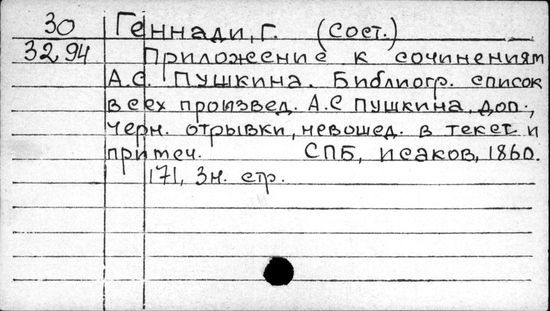 30 Геннади, Г. (сост.)
3294 Приложение к сочинениям
А.С. Пушкина. Библиогр. список
всех произвед. А.С Пушкина, доп.,
черн. отрывки, невошед. в текст и
примеч. СПБ, Исаков, 1860.
171, 3н. стр.